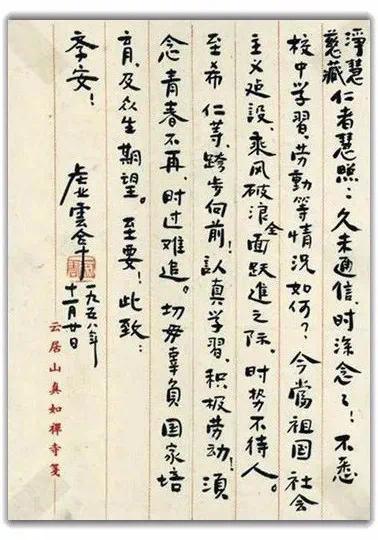 淨慧
慈藏
仁者慧照：久未通信，时深念々！不悉
校中学習、劳動等情況如何？今當祖国社会
主义建设、乘风破浪全面跃进之际，时势不待人。
至希 仁等、跨步向前！认真学習、积极劳动！须
念青春不再，时过难追。切毋辜负国家培
育，及众生期望。至要！此致：
季安！
虚雲合十
一九五八年
十一月廿日
云居山真如禅寺笺